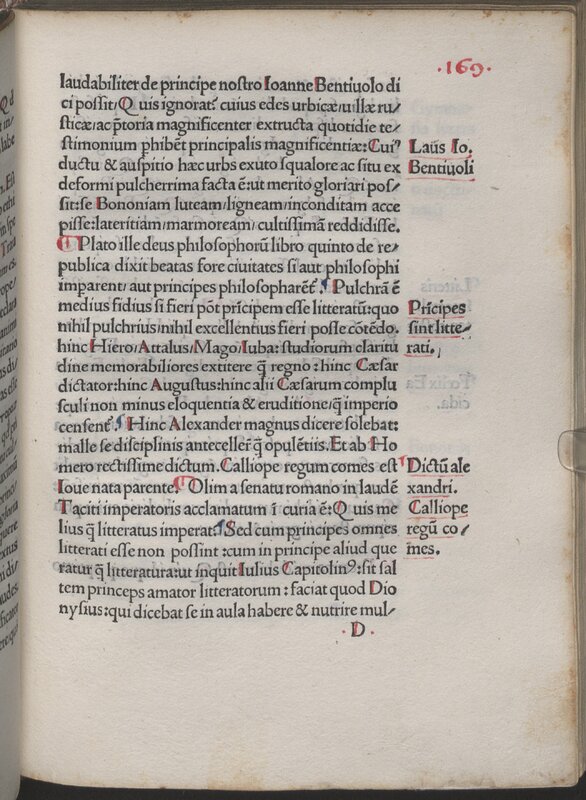 .169.
laudabiliter de principe nostro Ioanne Bentiuolo di
ci possit/Quis ignorat? cuius edes urbicæ/uillæ ru/
sticæ/ac p̃toria magnificenter extructa quotidie te/
stimonium phibẽt principalis magnificentiæ: Cui?
ductu & auspitio hæc urbs exuto squalore ac situ ex
deformi pulcherrima facta ẽ: ut merito gloriari pos/
sit: se Bononiam luteam/ligneam/inconditam acce
pisse: lateritiam/marmoream/cultissimã reddidisse.
¶ Plato ille deus philosophorũ libro quinto de re/
publica dixit beatas fore ciuitates si aut philosophi
imparent/aut principes philosopharẽt. ¶ Pulchrã ẽ
medius fidius si fieri põt prĩcipem esse litteratũ: quo
nihil pulchrius/nihil excellentius fieri posse cõtẽdo.
hinc Hiero/Attalus/Mago/Iuba: studiorum claritu
dine memorabiliores extitere q̃ regno: hinc Cæsar
dictator: hinc Augustus: hinc alii Cæsarum complu
sculi non minus eloquentia & eruditione/q̃ imperio
censent. ¶ Hinc Alexander magnus dicere solebat:
malle se disciplinis antecellere q̃ opulẽtiis. Et ab Ho
mero rectissime dictum. Calliope regum comes est
Ioue nata parente. ¶ Olim a senatu romano in laudẽ
Taciti imperatoris acclamatum ĩ curia ẽ: Quis me
lius q̃ litteratus imperat. ¶ Sed cum principes omnes
litterati esse non possint: cum in principe aliud que
ratur q̃ litteratura: ut inquit Iulius Capitolinꝰ: sit sal
tem princeps amator litteratorum: faciat quod Dio
nysius: qui dicebat se in aula habere & nutrire mul/
.D.
Laus Io.
Bentiuoli
Prĩcipes
sint litte/
rati.
Dictũ ale
xandri.
Calliope
regũ co/
mes.